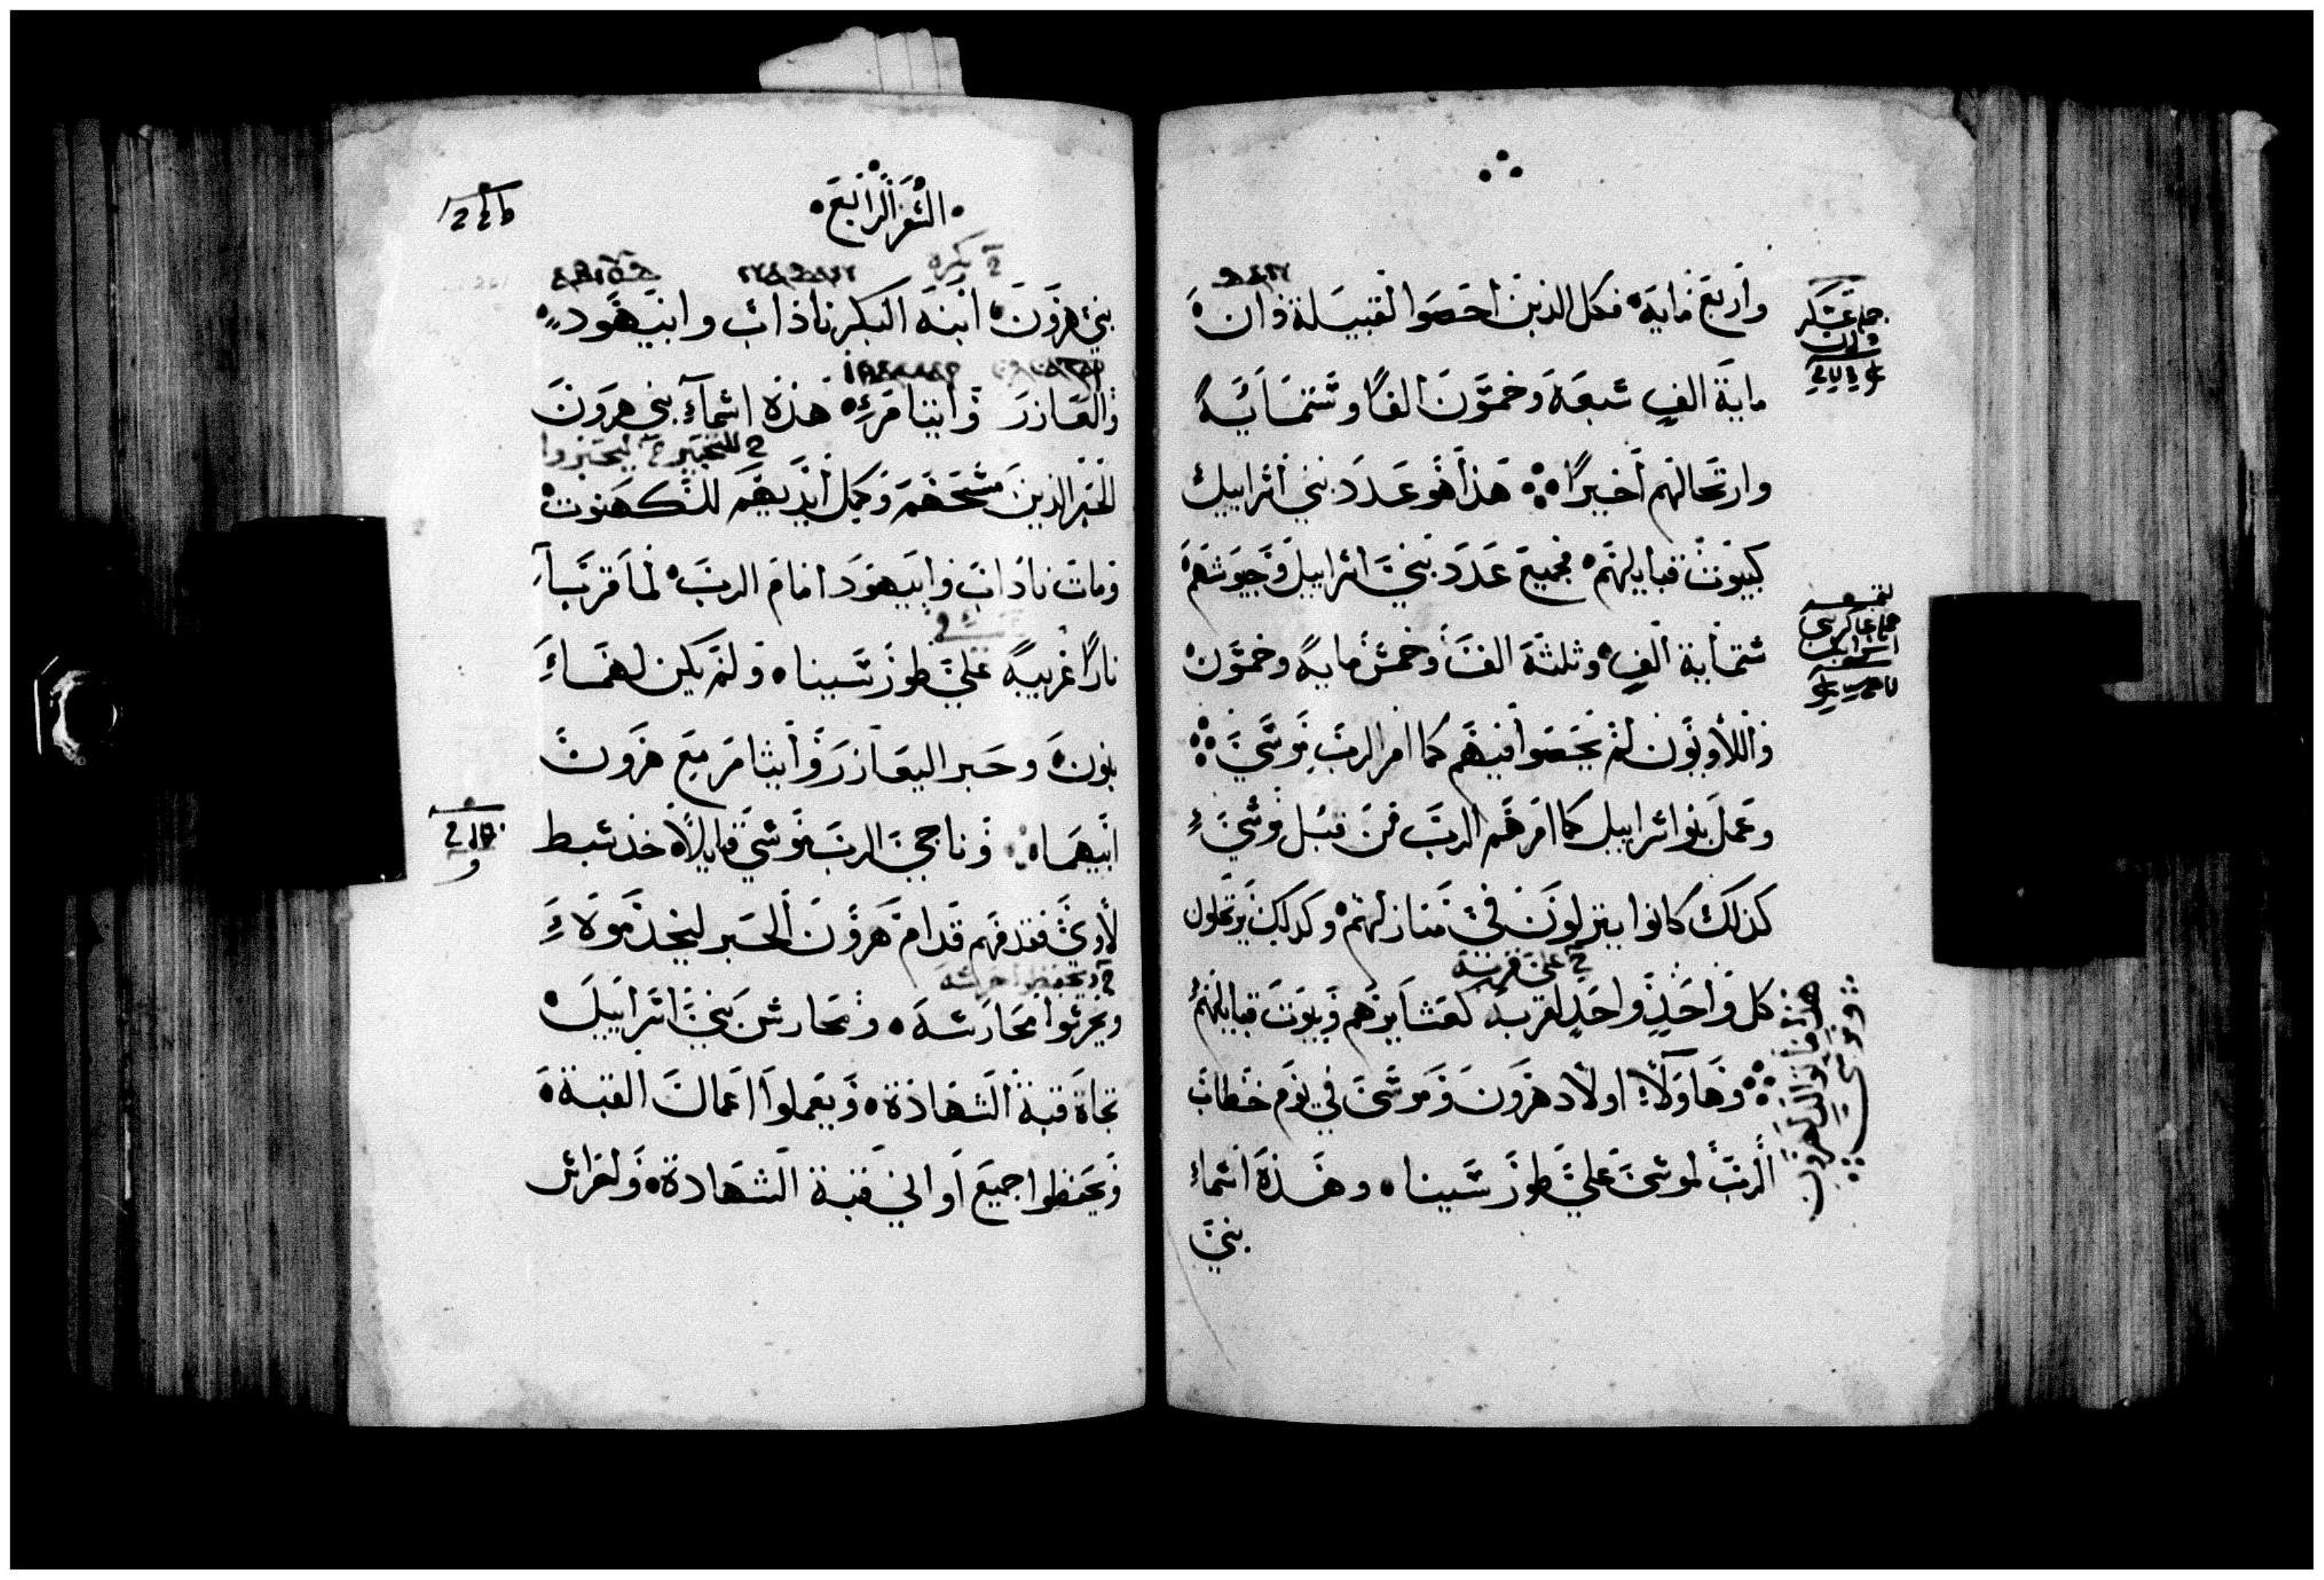 واربع مايه فكل الذين احصوا لقبيلة دان
ماية الفٍ سبعة وخمسون الفًا وستماية
وارتحالهم اخيرًا هذا هو عدد بني اسراييل
كبيوت قبايلهم فجميع عدد بني اسراييل وجيوشهم
ستماية الفٍ وثلثة الف وخمس ماية وخمسون
واللاويون لم يحصوا فيهم كما امر الرب موسى
وعمل بنوا اسراييل كما امرهم الرب من قبل موسى
كذلك كانوا ينزلون في منازلهم وكذلك يرتحلون
على قربه
كل واحدٍ واحدٍ لقربه كعشايرهم وبيوت قبايلهم
وهاولاء اولاد هرون وموسى في يوم خطاب
الرب لموسى على طور سينا وهذه اسماء
بني
السفر الرابع
بكره
بني هرون ابنه البكر ناداب وابيهود
والعازر وايتامر هذه اسماء بني هرون
الحبر الذين مسحهم وكمل ايديهم للكهنوت
ومات ناداب وابيهود امام الرب لما قربا
نارًا غريبةً على طور سينا ولم يكن لهما
بنون وحبر اليعازر وايثامر مع هرون
ابيهما وناجى الرب موسى قايلًا خذ سبط
لاوي فقدمهم قدام هرون الحبر ليخدموه
ويحرسوا محارسه ومحارس بني اسراييل
تجاه قبة الشهادة ويعملوا اعمال القبة
ويحفظوا جميع اواني قبة الشهادة ولحرائس